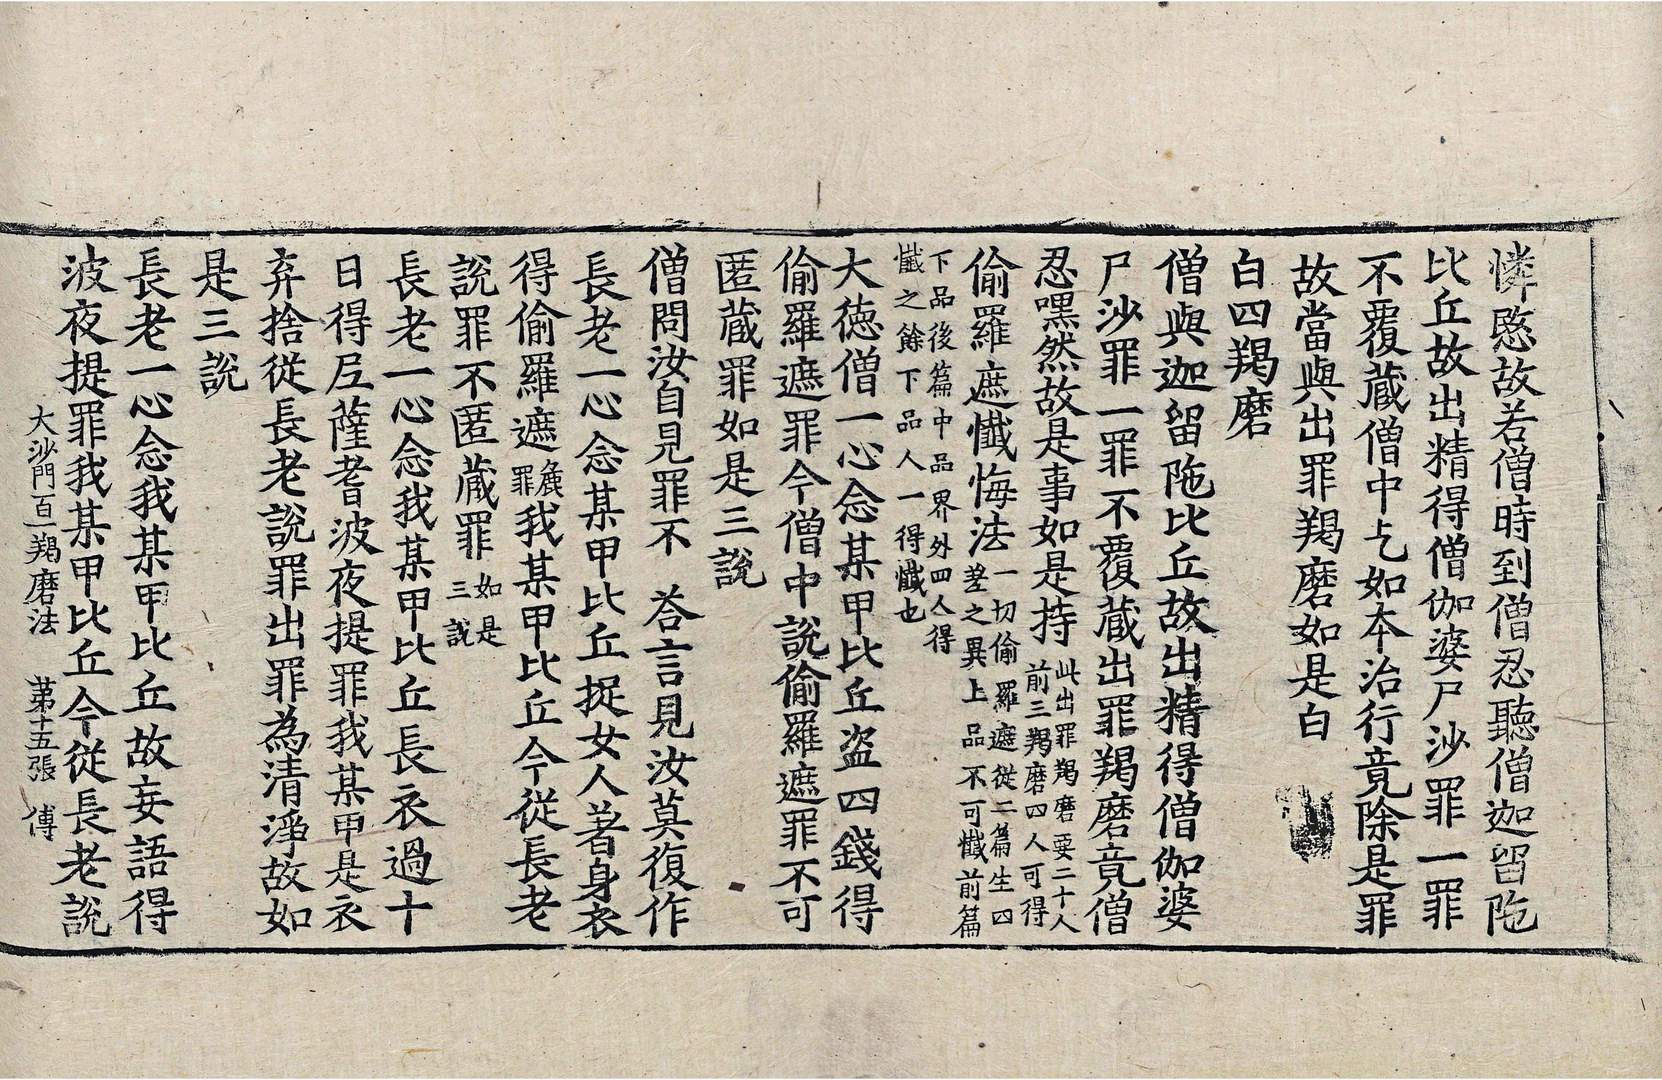 憐愍故若僧時到僧忍聽僧迦留陁
比丘故出精得僧伽婆尸沙罪一罪
不覆蔵僧中乞如本治行竟除是罪
故當與出罪羯磨如是白
白四羯磨
僧與迦留陁比丘故出精得僧伽婆
尸沙罪一罪不覆蔵出罪羯磨竟僧
忍嘿然故是事如是持此出罪羯磨要二十人前三羯磨四人可得
偷羅遮懺悔法一切偷羅遮從二篇生四差之異上品不可懺前篇
下品後篇中品界外四人得懺之餘下品人一得懺也
大徳僧一心念某甲比丘盜四錢得
偷羅遮罪今僧中說偷羅遮罪不可
匿蔵罪如是三說
僧問汝自見罪不 荅言見汝莫復作
長老一心念某甲比丘捉女人著身衣
得偷羅遮麁罪我某甲比丘今從長老
說罪不匿蔵罪如是三說
長老一心念我某甲比丘長衣過十
日得尼薩耆波夜提罪我某甲是衣
弃捨從長老說罪出罪為清淨故如
是三說
長老一心念我某甲比丘故妄語得
波夜提罪我某甲比丘今從長老說
大沙門百一羯磨法 苐十五張 傅